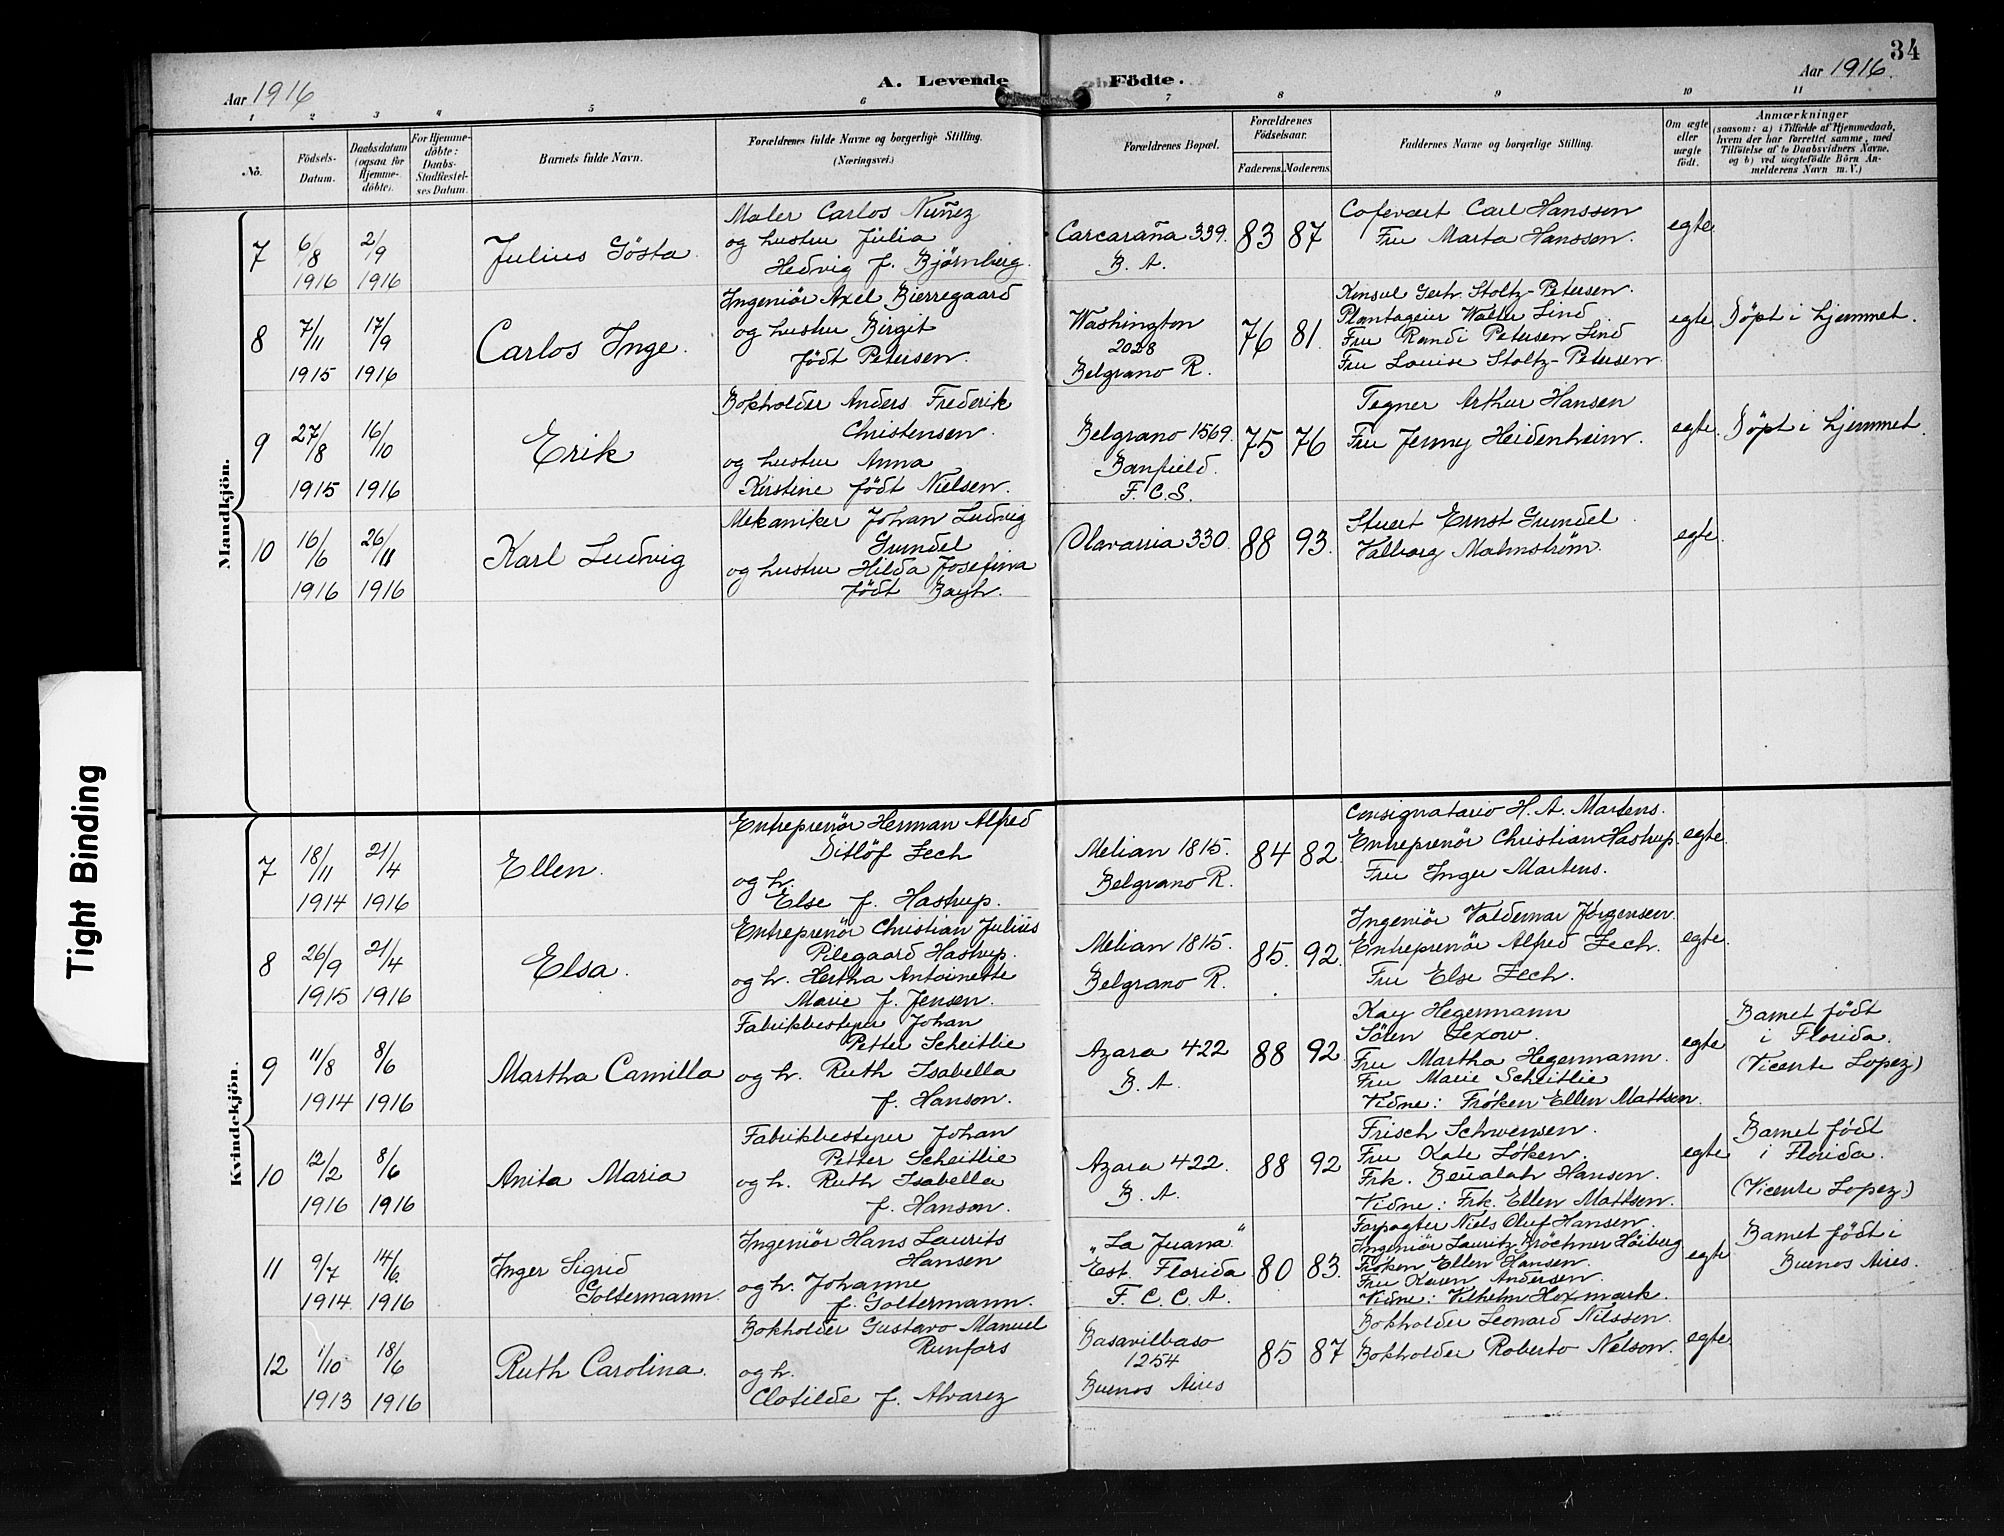 34
Aar 1916
A. Levende Födte.
Aar 1916.
1 2 3 4 5 6 7 8 9 10 11
No.
Födsels-
Datum.
Daabsdatum
(ogsaa for
Hjemme-
döbte).
For Hjemme-
döbte:
Daabs-
Stadfæstel-
ses Datum.
Barnets fulde Navn.
Forældrenes fulde Navne og borgerlige Stilling.
(Næringsvei.)
Forældrenes Bopæl.
Forældrenes
Födselsaar.
Faderens. Moderens.
Faddernes Navne og borgerlige Stilling.
Om ægte
eller
uægte
födt.
Anmærkninger
(saasom: a) i Tilfælde af Hjemmedaab,
hvem der har forrettet samme, med
Tilföielse af to Daabsvidners Navne,
og b) ved uægtefödte Börn An-
melderens Navn m. V.)
Mandkjön.
7
6/8
1916
2/9
1916
Julius Gösta
Maler Carlos Nuñez
og hustru Julia
Hedvig f. Bjørnberg.
Carcaraña 339.
B. A.
83 87
Cafevært Carl Hanssen
Fru Marta Hanssen.
egte
8
7/11
1915
17/9
1916
Carlos Inge.
Ingeniör Axel Bierregaard
og hustru Birgit
født Petersen.
Washington
2028
Belgrano R.
76 81.
Konsul Gerh. Stoltz-Petersen.
Plantageier Walter Lind
Fru Randi Petersen Lind
Fru Louise Stoltz-Petersen
egte
Döpt i hjemmet.
9
27/8
1915
16/10
1916
Erik
Bokholder Anders Frederik
Christensen.
og hustru Anna
Kirstine født Nielsen.
Belgrano 1569.
Banfield.
F. C. S.
75 76
Tegner Arthur Hansen
Fru Jenny Heidenheim.
egte.
Döpt i hjemmet.
10
16/6
1916
26/11
1916
Karl Ludvig
Mekaniker Johan Ludvig
Grundel
og hustru Hilda Josefina
født Bayh.
Olavarria 330.
88 93.
Stuert Ernst Grundel.
Valborg Malmstrøm.
egte.
Kvindekjön.
7
18/11
1914
21/4
1916
Ellen.
Entreprenör Herman Alfred
Ditlöf Zech
og h.
Else f. Hastrup.
Melian 1815.
Belgrano R.
84 82.
Consignatario H. A. Martens.
Entreprenör Christian Hastrup.
Fru Inger Martens.
egte.
8
26/9
1915
21/4
1916
Elsa.
Entreprenör Christian Julius
Pilegaard Hastrup.
og h. Hertha Antoinette
Marie f. Jensen.
Melian 1815.
Belgrano R.
85. 92.
Ingeniör Valdemar Jørgensen.
Entreprenör Alfred Zech.
Fru Else Zech.
egte.
9
11/8
1914
8/6
1916
Martha Camilla
Fabrikbestyrer Johan
Petter Scheitlie
og h. Ruth Isabella
f. Hanson.
Azara 422
B. A.
88 92.
Kay Hegermann
Sören Lexow.
Fru Martha Hegermann.
Fru Marie Scheitlie
Vidne: Frøken Ellen Mattsen.
egte
Barnet født
i Florida.
(Vicente Lopez)
10
12/2
1916
8/6
1916
Anita Maria
Fabrikbestyrer Johan
Petter Scheitlie
og h. Ruth Isabella
f. Hanson.
Azara 422.
B. A.
88 92
Frisch Schwensen.
Fru Kate Løken.
Frk. Beualah Hanson.
Vidne: Frk. Ellen Mattsen.
egte
Barnet født
i Florida.
(Vicente Lopez.)
11
9/7
1914.
14/6.
1916
Inger Sigrid
Goltermann.
Ingeniör Hans Laurits
Hansen
og h. Johanne
f. Goltermann.
„La Juana"
Est. Florida
F. C. C. A.
80 83.
Forpagter Niels Oluf Hansen.
Ingeniör Lauritz Bröchner Höiberg
Frøken Ellen Hansen.
Fru Karen Andersen.
Vidne: Vilhelm Hoxmark.
egte
Barnet født i
Buenos Aires.
12
1/10
1913
18/6
1916
Ruth Carolina.
Bokholder Gustavo Manuel
Runfors
og h.
Clotilde f. Alvarez
Basavilbaso
1254
Buenos Aires
85 87
Bokholder Leonard Nilsson.
Bokholder Roberto Nelson.
egte.
Tight Binding